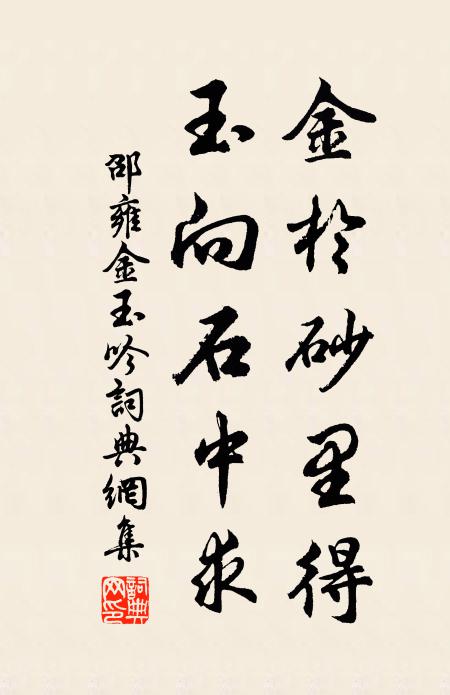 金於砂里得
玉向石中求
邵雍金玉吟詞典網集
詞典網印